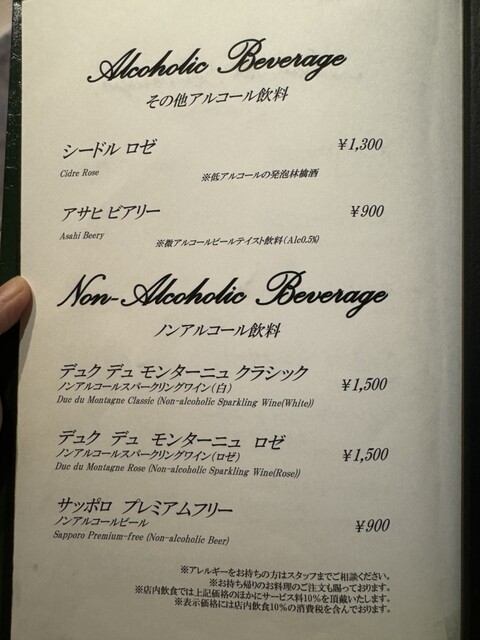 Alcoholic Beverage
その他アルコール飲料
シードル ロゼ ¥1,300
Cidre Rose ※低アルコールの発泡林檎酒
アサヒ ビアリー ¥900
Asahi Beery ※微アルコールビールテイスト飲料(Alc0.5%)
Non-Alcoholic Beverage
ノンアルコール飲料
デュク デュ モンターニュ クラシック
ノンアルコールスパークリングワイン(白) ¥1,500
Duc du Montagne Classic (Non-alcoholic Sparkling Wine(White))
デュク デュ モンターニュ ロゼ
ノンアルコールスパークリングワイン(ロゼ) ¥1,500
Duc du Montagne Rose (Non-alcoholic Sparkling Wine(Rose))
サッポロ プレミアムフリー
ノンアルコールビール ¥900
Sapporo Premium-free (Non-alcoholic Beer)
※アレルギーをお持ちの方はスタッフまでご相談ください。
※お持ち帰りのお料理のご注文も賜っております。
※店内飲食では上記価格のほかにサービス料10%を頂戴いたします。
※表示価格には店内飲食10%の消費税を含んでおります。